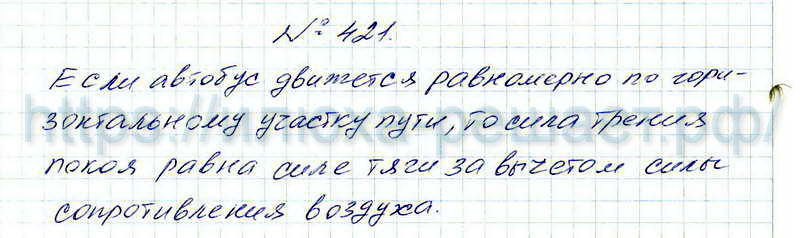 № 421.
Если автобус движется равномерно по гори-
зонтальному участку пути, то сила трения
покоя равна силе тяги за вычетом силы
сопротивления воздуха.